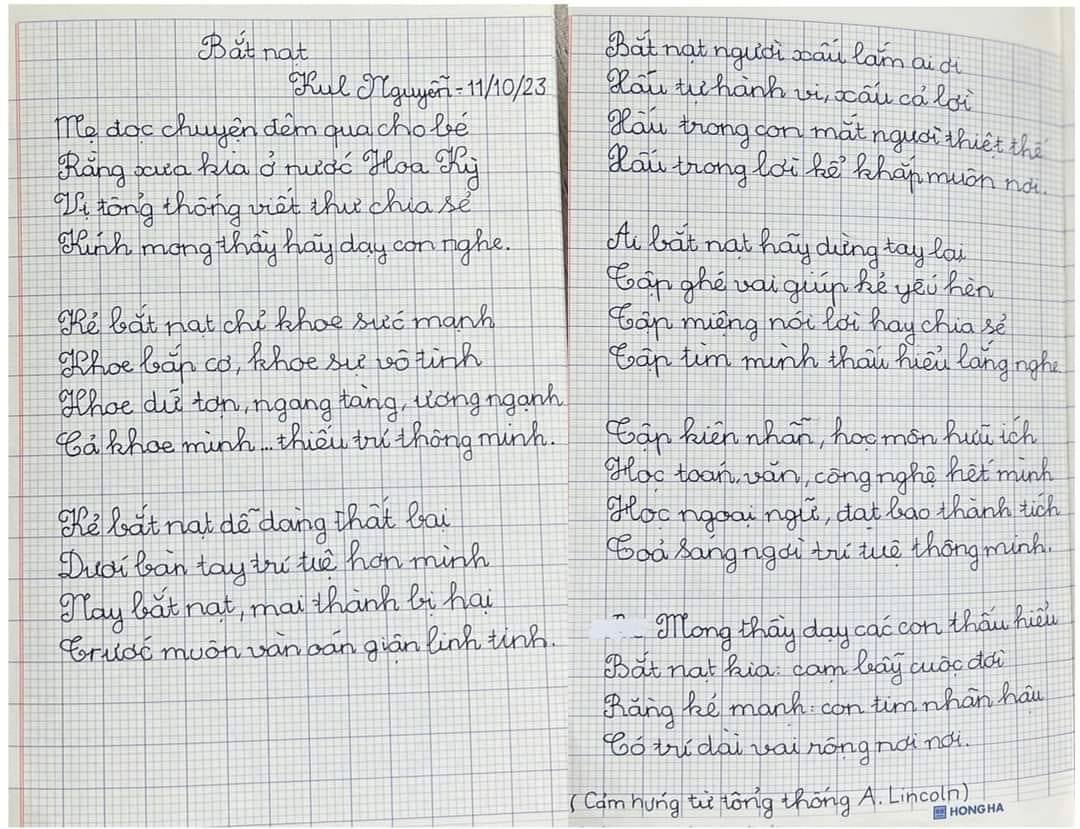 Bắt nạt
Kul Nguyễn - 11/10/23
Mẹ đọc chuyện đêm qua cho bé
Rằng xưa kia ở nước Hoa Kỳ
Vị tổng thống viết thư chia sẻ
Kính mong thầy hãy dạy con nghe.
Kẻ bắt nạt chỉ khoe sức mạnh
Khoe bắp cơ, khoe sự vô tình
Khoe dữ tợn, ngang tàng, ương ngạnh
Cả khoe mình... thiếu trí thông minh.
Kẻ bắt nạt dễ dàng thất bại
Dưới bàn tay trí tuệ hơn mình
Nay bắt nạt, mai thành bị hại
Trước muôn vàn oán giận linh tinh.
Bắt nạt người xấu lắm ai ơi
Xấu từ hành vi, xấu cả lời
Xấu trong con mắt người thiệt thế
Xấu trong lời kể khắp muôn nơi.
Ai bắt nạt hãy dừng tay lại
Tập ghé vai giúp kẻ yếu hèn
Tập miệng nói lời hay chia sẻ
Tập tim mình thấu hiểu lắng nghe
Tập kiên nhẫn, học môn hữu ích
Học toán, văn, công nghệ hết mình
Học ngoại ngữ, đạt bao thành tích
Toả sáng ngời trí tuệ thông minh.
Mong thầy dạy các con thấu hiểu
Bắt nạt kia: cạm bẫy cuộc đời
Rằng kẻ mạnh: con tim nhân hậu
Có trí dài vai rộng nơi nơi.
(Cảm hứng từ tổng thống A. Lincoln)
HONG HA